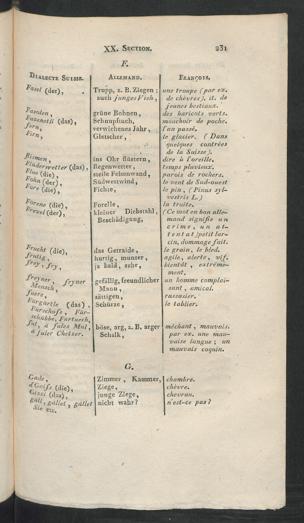 XX. SECTION. 231
F.
DIALECTE SUISSE. ALLEMAND. FRANÇOIS.
Fasel (der), Trupp, z. B. Ziegen; une troupe (par ex.
auch junges Vieh, de chèvres), it. de
jeunes bestiaux.
grüne Bohnen, des haricots verts.
Schnupftuch, mouchoir de poche.
fern, verwichenes Jahr, l'an passé.
Firn, Gletscher, le glacier. (Dans
quelques contrées
de la Suisse).
ins Ohr flüstern, dire à l'oreille.
(das), Regenwetter, temps pluvieux.
Flue (die), steile Felsenwand, parois de rochers.
Föhn (der), Südwestwind, le vent de Sud-ouest
Fore (die), Fichte, le pin, (Pinus syl-
vestris L.)
Forene (die), Forelle, la truite.
Frevel (der), kleiner Diebstahl, (Ce mot en bon alle-
Beschädigung, mand signifie un
crime, un at-
tentat) petit lar-
cin, dommage fait.
Frucht (die), das Getraide, le grain, le bled.
frutig, hurtig, munter, agile, alerte, vif.
frey, fry, ja bald, sehr, bientôt, extrême-
ment.
freyner, fryner gefällig, freundlicher un homme complai-
Mensch, Mann, sant, amical.
fuere, sättigen, rassasier.
(das), Schürze, le tablier.
ful, à fules Mul, böse, arg, z. B. arger méchant, mauvais.
à fuler Schalk, par ex. une mau-
vaise langue; un
mauvais coquin.
G.
Gade, Zimmer, Kammer, chambre.
d'Geiss (die), Ziege, chèvre.
Gitzi (das), junge Ziege, chevreau.
gäll, gället, gället nicht wahr? n'est-ce pas?
Sie